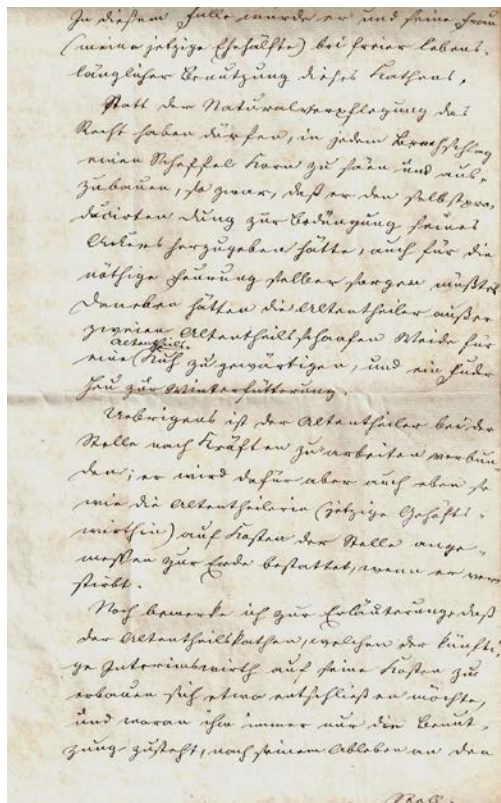 In diesem Falle würde er und seine Frau
(meine jetzige Ehehälfte) bei freier lebens-
länglicher Benutzung dieses Kathens,
statt der Naturalverpflegung das
Recht haben dürfen, in jedem Brachschlag
einen Scheffel Korn zu säen und aus-
zubauen, so zwar, daß er den selbstpro-
ducirten Dung zur Bedüngung seines
Ackers herzugeben hätte, auch für die
nöthige Feurung selber sorgen müßte.
Daneben hätten die Altentheiler außer
zweien Altentheilsschaafen Weide für
eine Altentheils-Kuh zu gewärtigen, und ein Fuder
Heu zur Winterfütterung.
Uebrigens ist der Altentheiler bei der
Stelle nach Kräften zu arbeiten verbun-
den; er wird dafür aber auch eben so
wie die Altentheilerin (jetzige Gehöfts-
wirthin) auf Kosten der Stelle ange-
messen zur Erde bestattet, wenn er
stirbt.
Noch bemerke ich zur Erläuterung, daß
der Altentheilskathen, welchen der künfti-
ge Interimswirth auf seine Kosten zu
erbauen sich etwa entschließen möchte,
und woran ihm immer nur die Benut-
zung zusteht, nach seinem Ableben an den